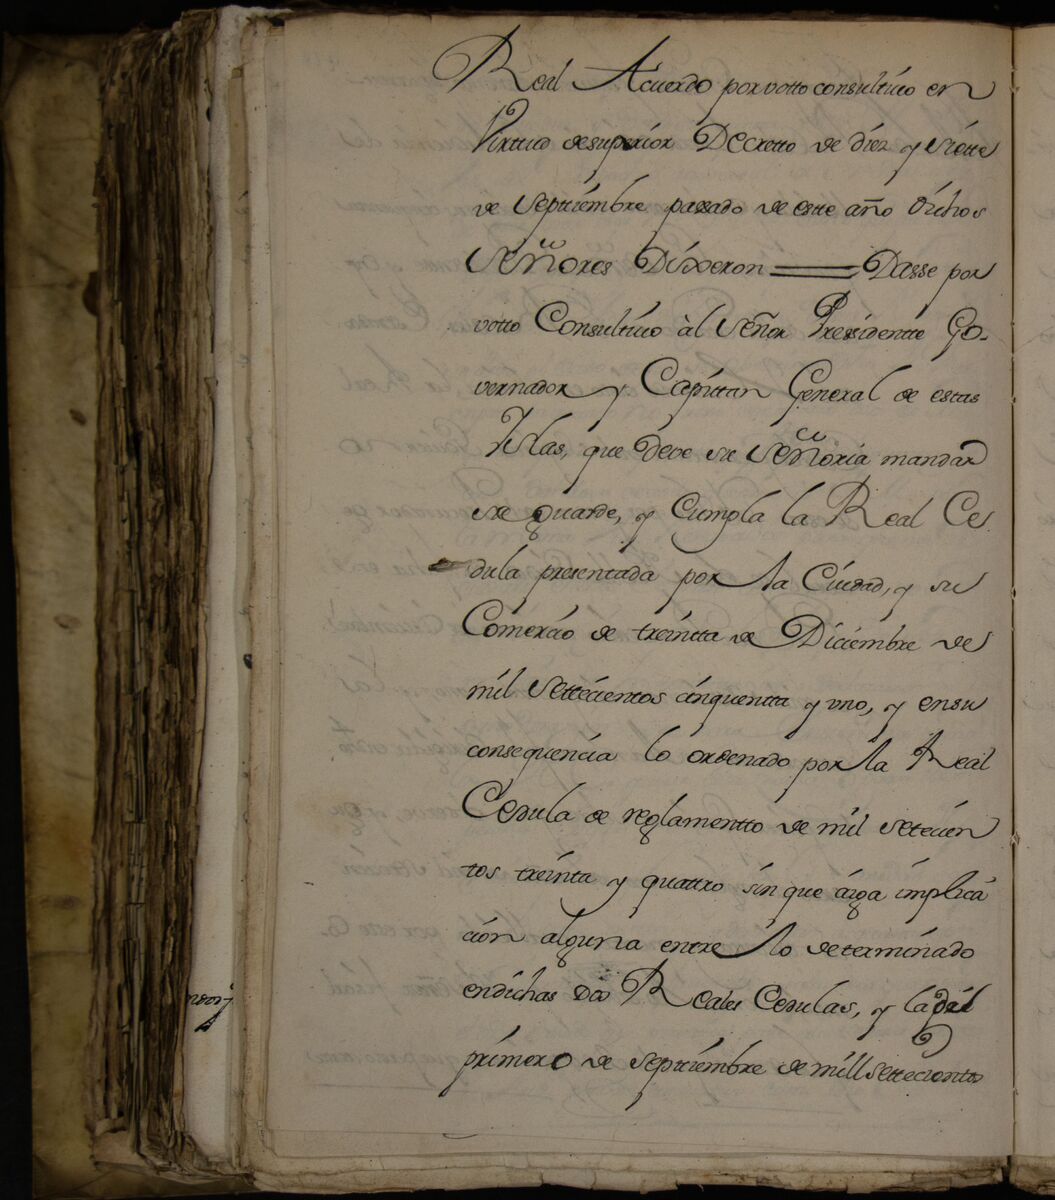 Real Acuerdo por votto consultivo en
Virtud desuperior Decretto de diez y siette
de Septiembre passado de este año dichos
Señores Dixeron ═══ Dasse por
votto Consultivo àl Señor Presidentte Go-
vernador y Capittan General de estas
Yslas, que deve su Señoria mandar
se guarde, y cumpla la Real Ce
dula presentada por la Ciudad, y su
Comercio de treintta de Diciembre de
mil settecientos cinquentta y uno, y ensu
consequencia lo ordenado por la Real
Cedula de reglamentto de mil setecien
tos treinta y quattro sin que aiga implica
cion alguna entre lo determinado
endichas dos Reales Cedulas, y la del
primero de septiembre de mill settecientos